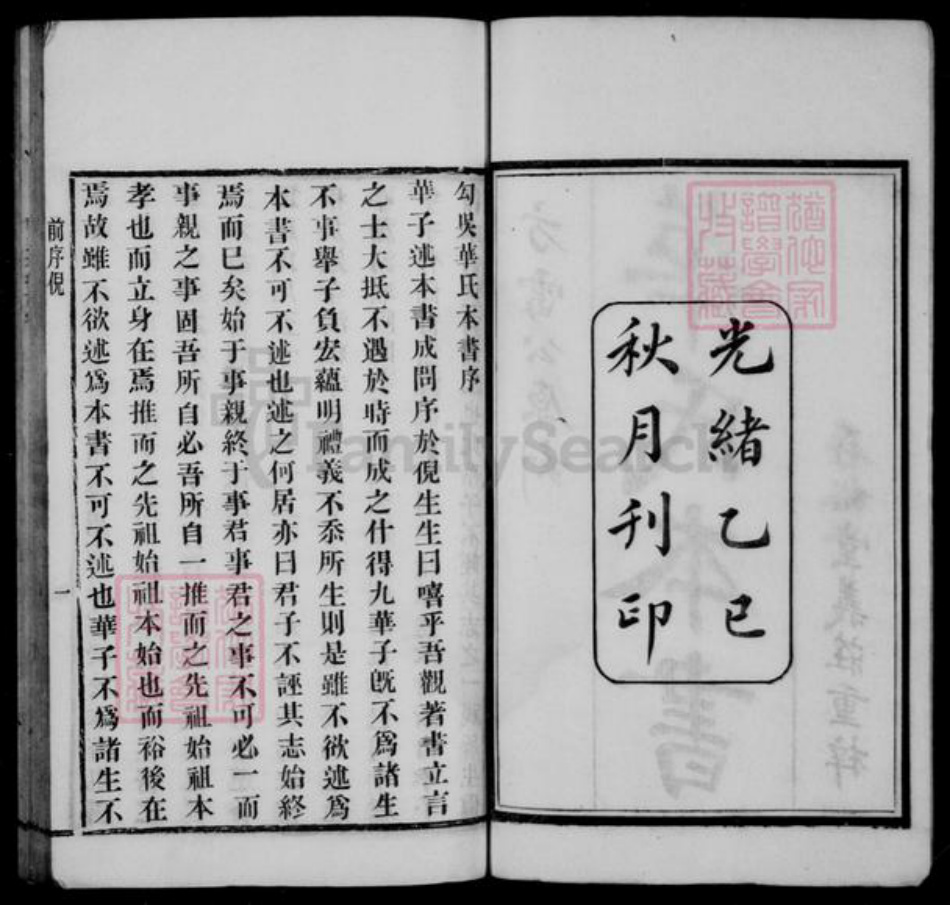 光緒乙巳
秋月刊印
勾吳華氏本書序
華子述本書成問序於倪生生曰嘻乎吾觀著書立言
之士大抵不遇於時而成之什得九華子旣不爲諸生
不事舉子負宏蘊明禮義不忝所生則是雖不欲述爲
本書不可不述也述之何居亦曰君子不誣其志始終
焉而已矣始于事親終于事君事君之事不可必一而
事親之事固吾所自必吾所自一推而之先祖始祖本
孝也而立身在焉推而之先祖始祖本始也而裕後在
焉故雖不欲述爲本書不可不述也華子不爲諸生不
前序倪
一
FamilySearch